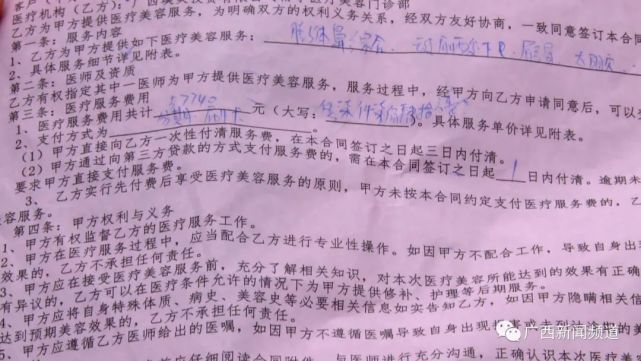 医疗机构(乙方):
乙方为甲方提供医疗美容服务,为明确双方的权利义务关系,经双方友好协商,一致同意签订本合同
第一条:服务内容
1、乙方为甲方提供如下医疗美容服务:
2、具体服务细节详见附表。
第二条:医师及资质
乙方有权指定其中一医师为甲方提供医疗美容服务,服务过程中,经甲方向乙方申请同意后,可以
第三条:医疗服务费用
1、医疗服务费用共计 57740 元(大写: )。具体服务单价详见附表。
2、支付方式为
(1)甲方直接向乙方一次性付清服务费,在本合同签订之日起三日内付清。
(2)甲方通过向第三方贷款的方式支付服务费的,需在本合同签订之日起 1 日内付清。逾期未
要求甲方直接支付服务费。
3、乙方实行先付费后享受医疗美容服务的原则,甲方未按本合同约定支付医疗服务费的,乙
美容服务。
第四条:甲方权利与义务
1、甲方有权监督乙方的医疗服务工作。
2、甲方在医疗服务过程中,应当配合乙方进行专业性操作。如因甲方不配合工作,导致自身出现
效果的,乙方不承担任何责任。
3、甲方应在接受医疗美容服务前,充分了解相关知识,对本次医疗美容所能达到的效果有正确
有异议的,乙方可以在医疗条件允许的情况下为甲方提供修补、护理等后期服务。
4、甲方应将自身特殊体质、病史、美容史等必要相关信息如实告知乙方,如因甲方隐瞒相关信
达到预期美容效果的,乙方不承担任何责任。
5、甲方应遵循乙方医师给出的医嘱,如因甲方不遵循医嘱导致自身出现
应仔细阅读合同附件,与医师进行充分沟通,正确认识本次医疗美
广西新闻频道